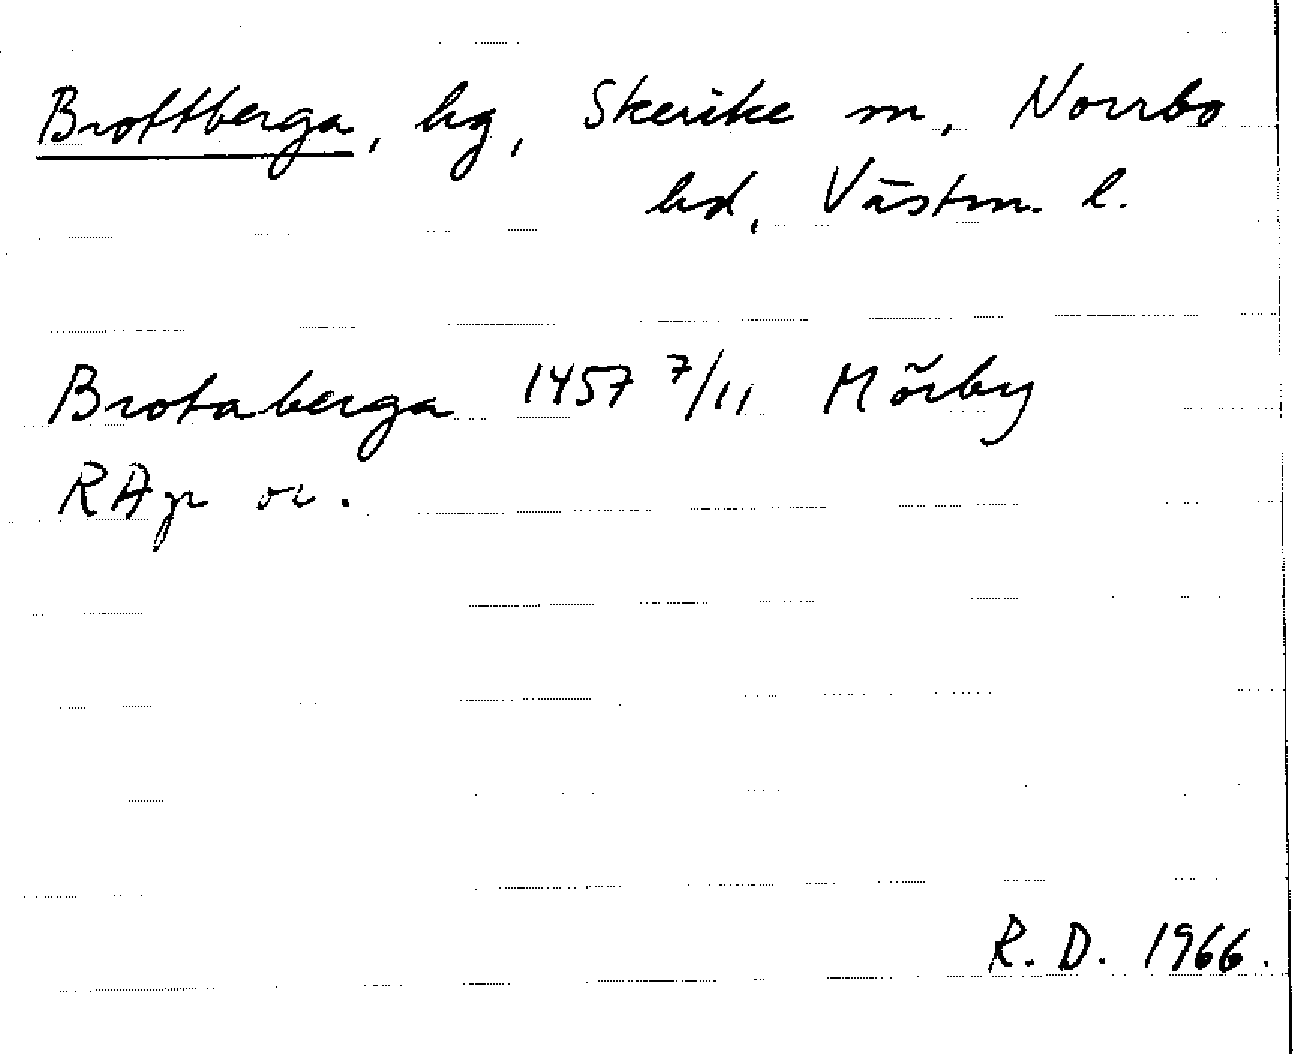 Brottberga, hg, Skerike sn, Norrbo
hd, Västm. l.
Brotaberga 1457 7/11 Mörby
RAp or.
R. D. 1966.